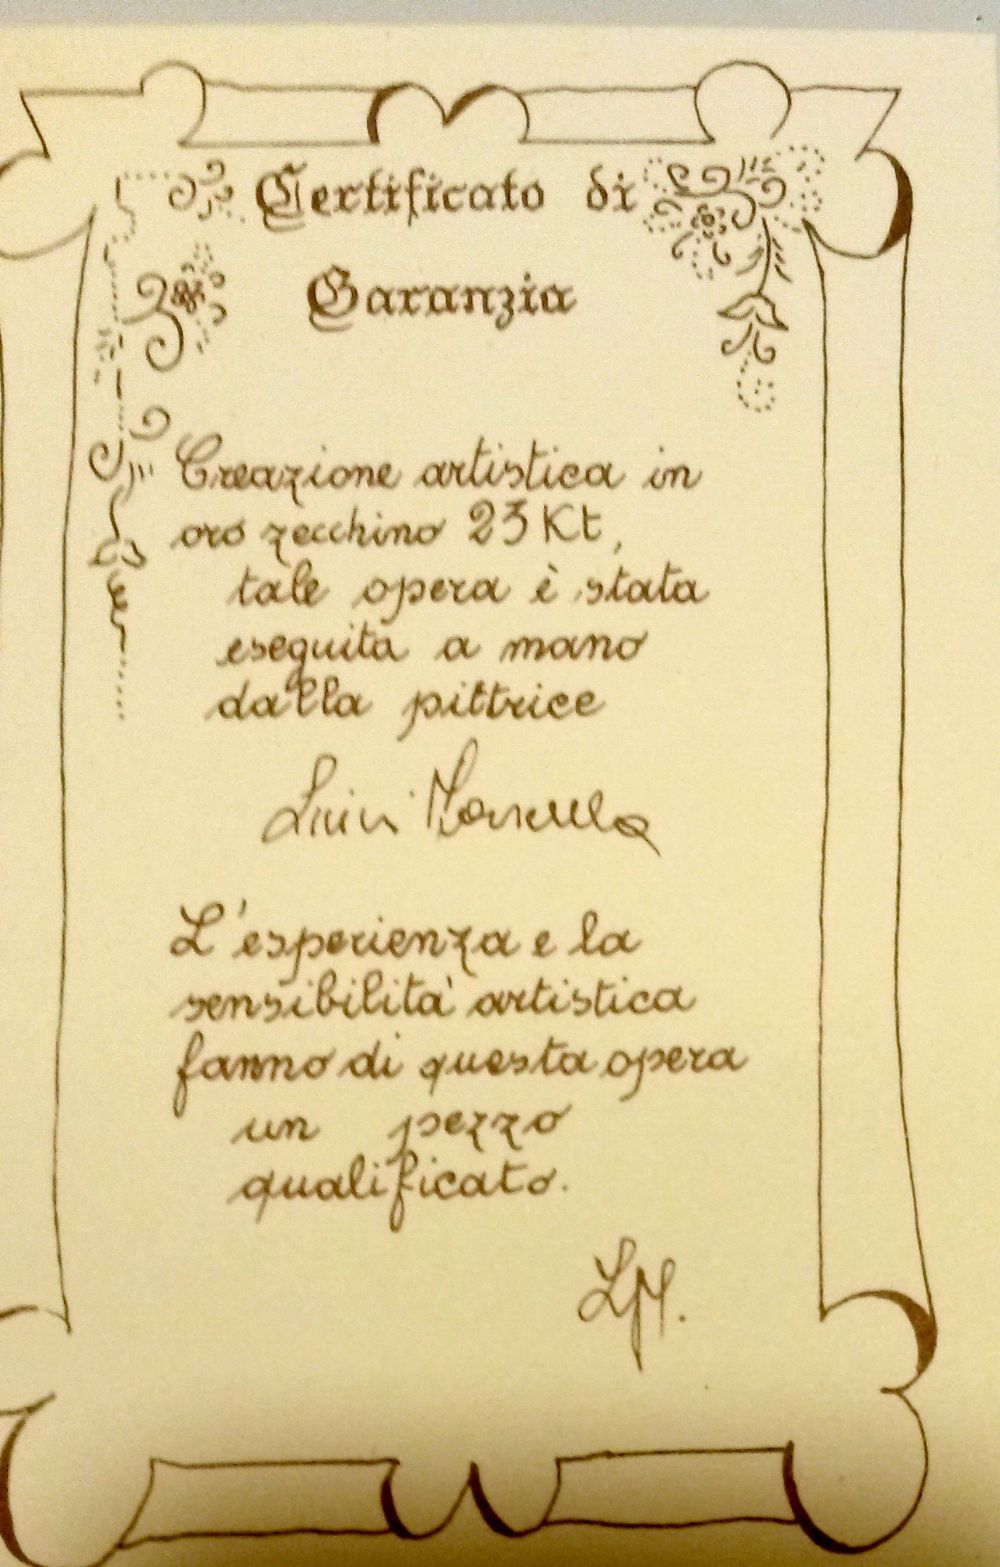 Certificato di
Garanzia
Creazione artistica in
oro zecchino 23 Kt,
tale opera è stata
eseguita a mano
dalla pittrice
L'esperienza e la
sensibilità artistica
fanno di questa opera
un pezzo
qualificato.
LM.